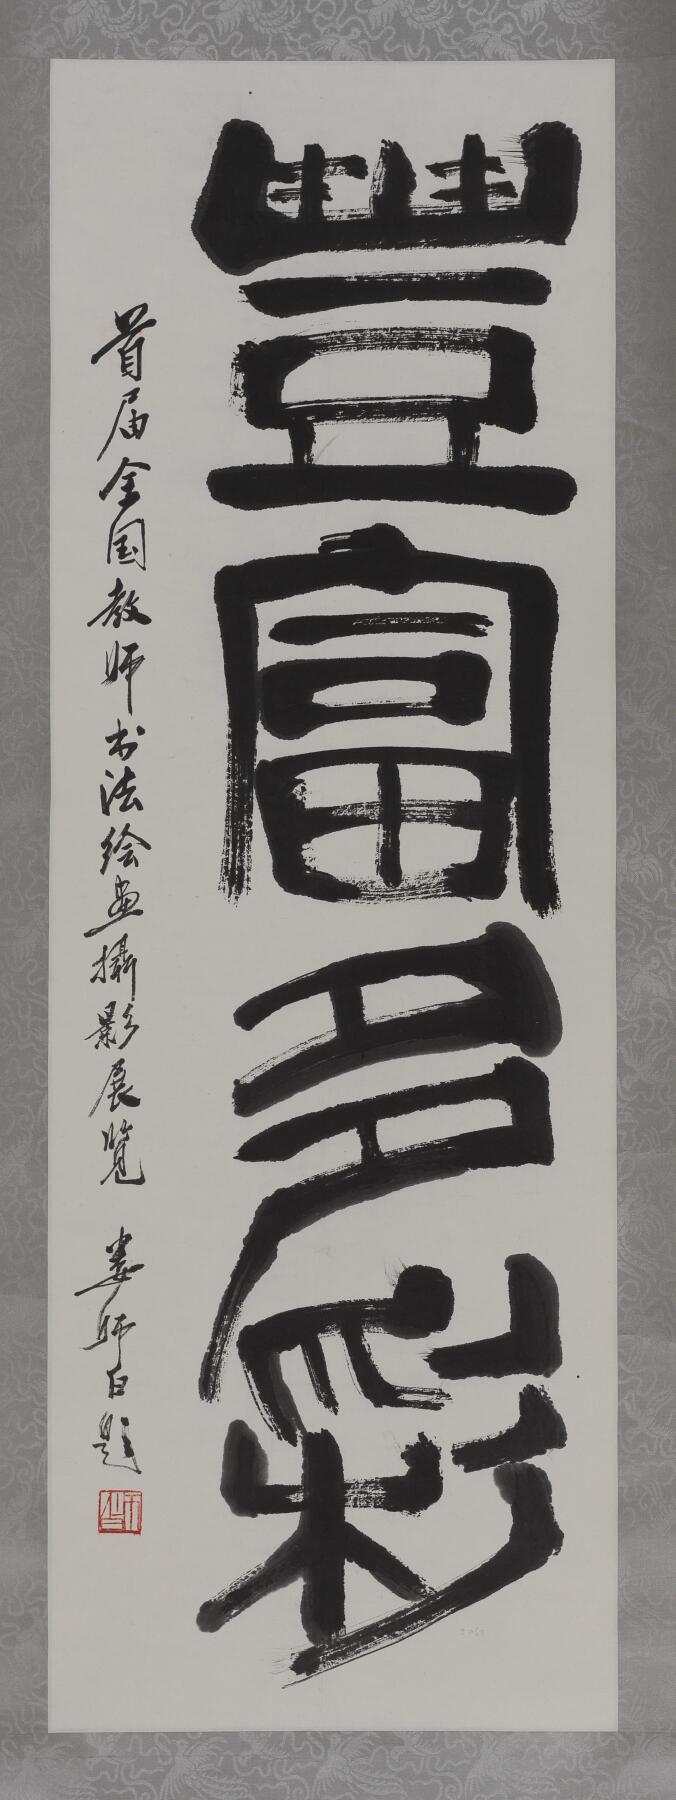 豐富多彩
首届全国教师书法绘画攝影展覽 娄师白题
师白